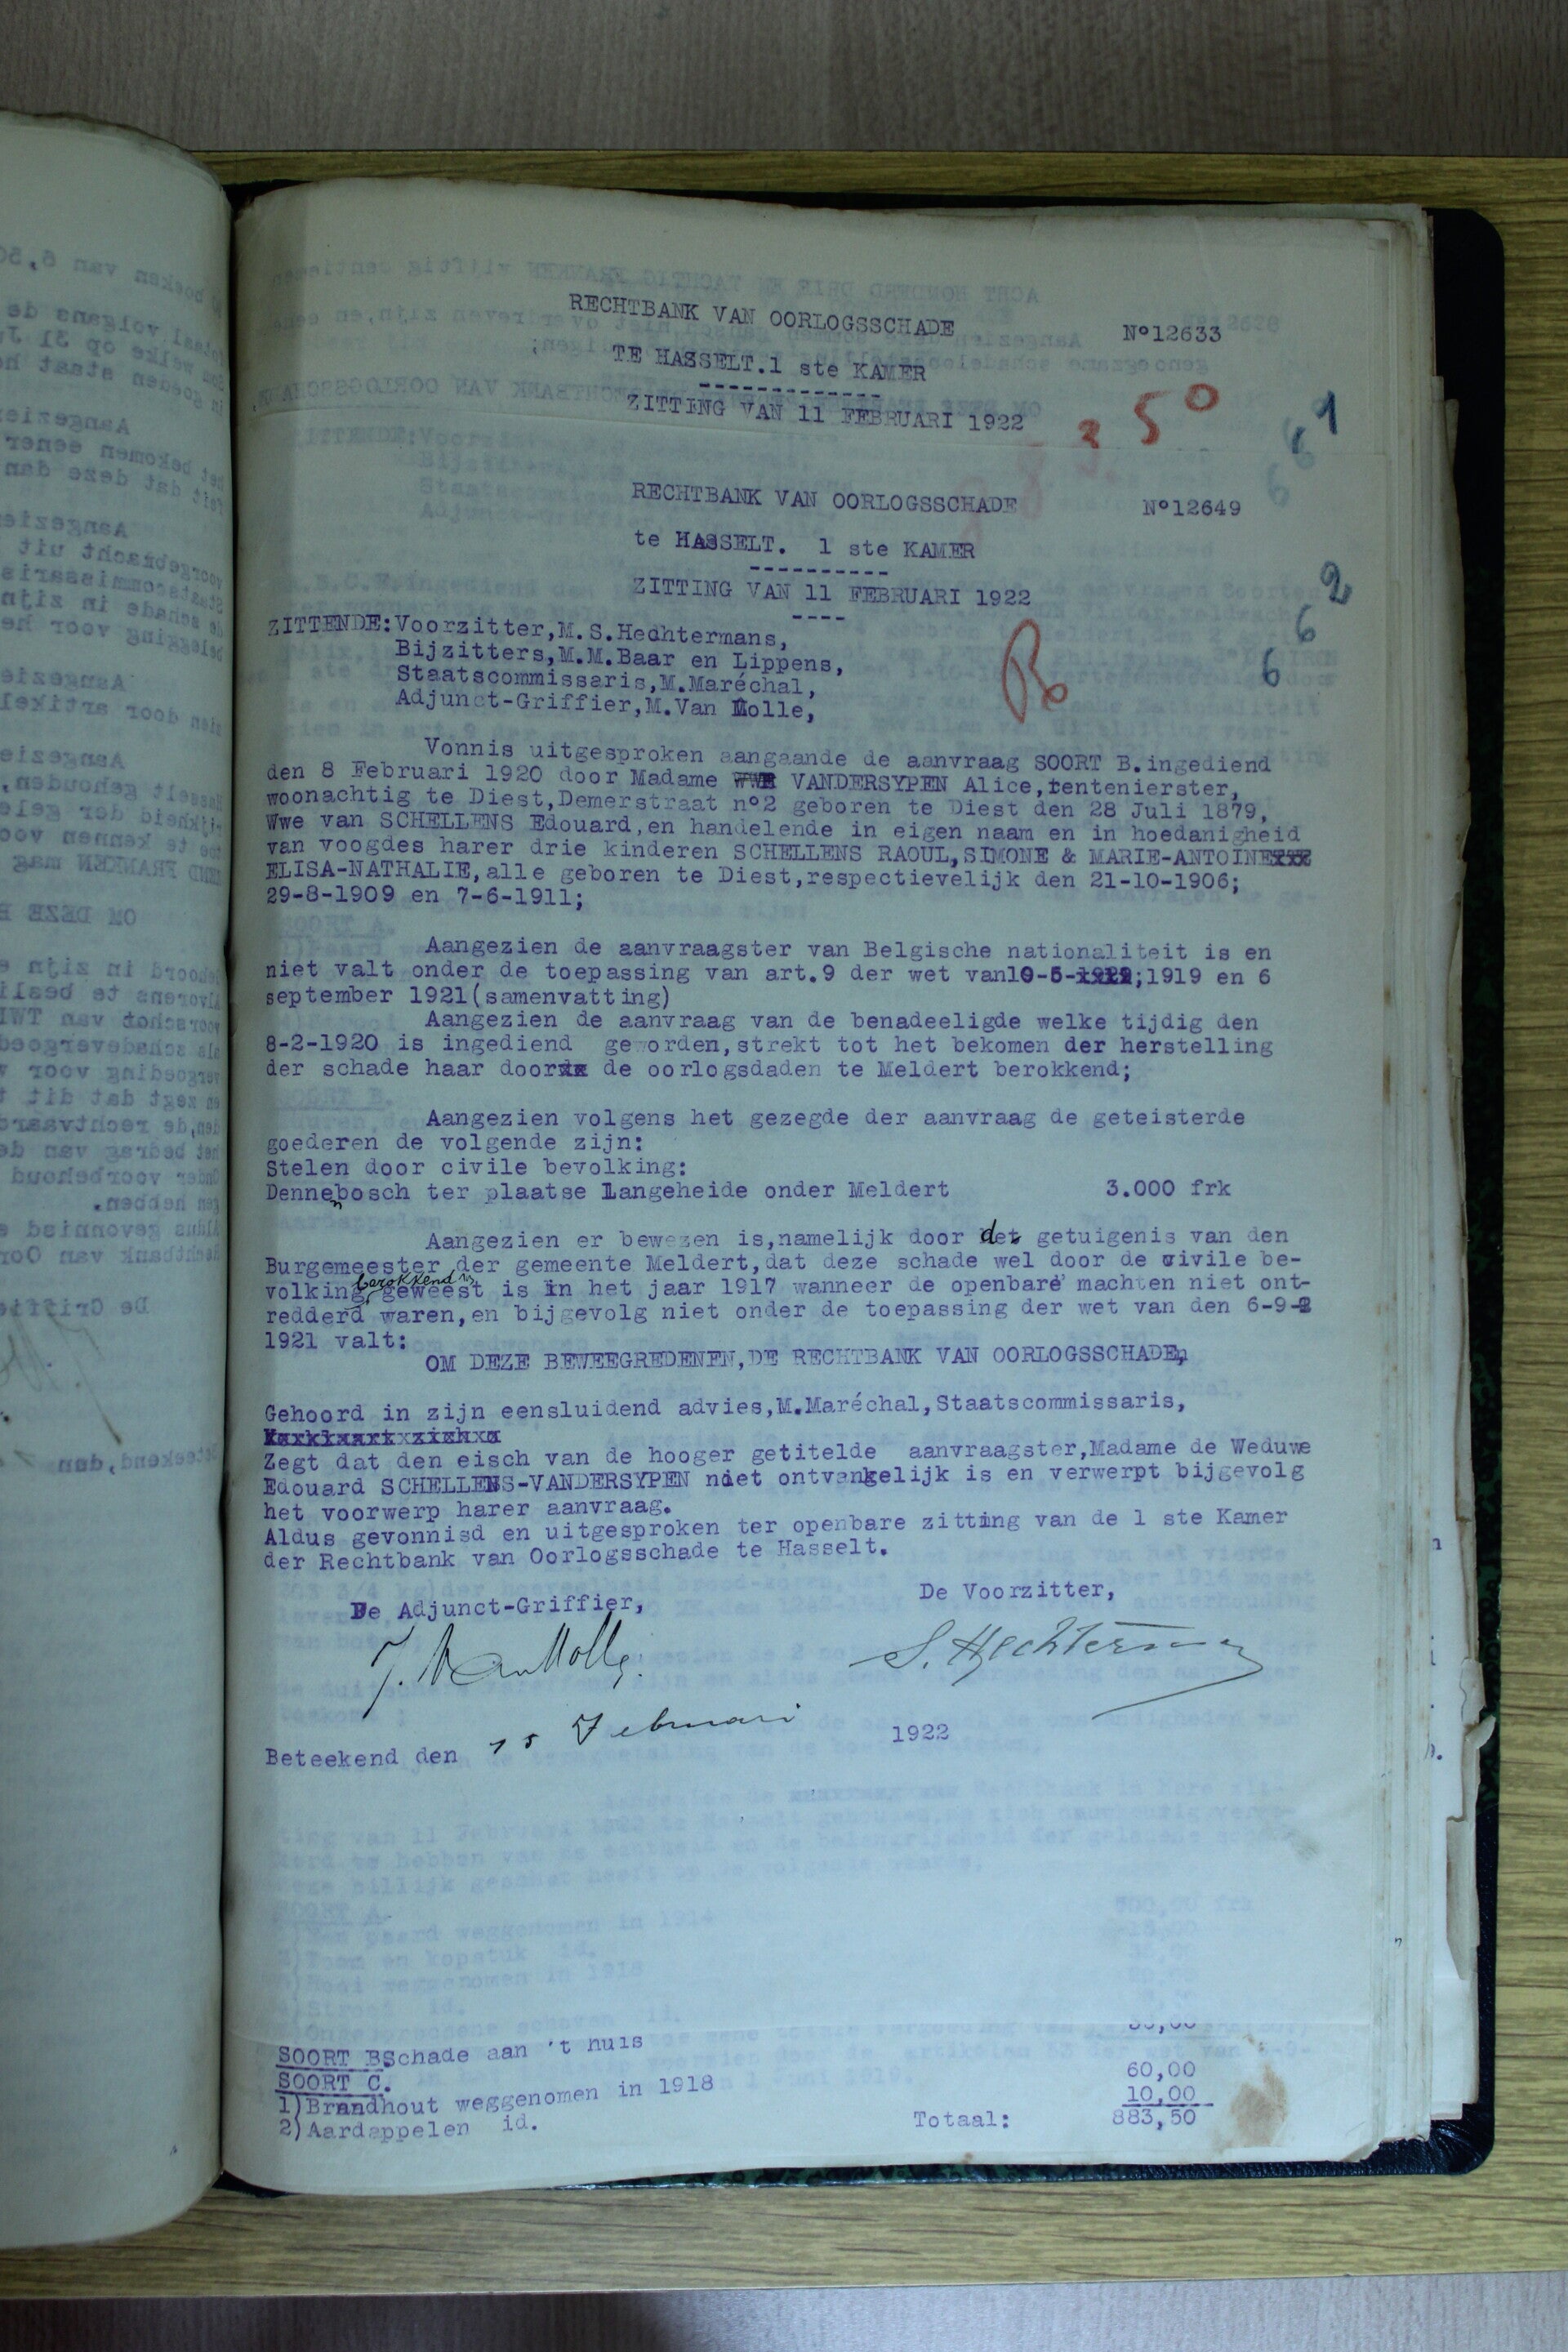 RECHTBANK VAN OORLOGSSCHADE N°12633
TE HASSELT.1 ste KAMER
-------------
ZITTING VAN 11 FEBRUARI 1922
50
661
RECHTBANK VAN OORLOGSSCHADE N°12649
te HASSELT. 1 ste KAMER
----------
ZITTING VAN 11 FEBRUARI 1922
----
662
B
ZITTENDE:Voorzitter,M.S.Hechtermans,
Bijzitters,M.M.Baar en Lippens,
Staatscommissaris,M.Maréchal,
Adjunct-Griffier,M.Van Molle,
Vonnis uitgesproken aangaande de aanvraag SOORT B.ingediend
den 8 Februari 1920 door Madame WWE VANDERSYPEN Alice,rentenierster,
woonachtig te Diest,Demerstraat n°2 geboren te Diest den 28 Juli 1879,
Wwe van SCHELLENS Edouard,en handelende in eigen naam en in hoedanigheid
van voogdes harer drie kinderen SCHELLENS RAOUL,SIMONE & MARIE-ANTOINE
ELISA-NATHALIE,alle geboren te Diest,respectievelijk den 21-10-1906;
29-8-1909 en 7-6-1911;
Aangezien de aanvraagster van Belgische nationaliteit is en
niet valt onder de toepassing van art.9 der wet van10-5-;1919 en 6
september 1921(samenvatting)
Aangezien de aanvraag van de benadeeligde welke tijdig den
8-2-1920 is ingediend geworden,strekt tot het bekomen der herstelling
der schade haar door de oorlogsdaden te Meldert berokkend;
Aangezien volgens het gezegde der aanvraag de geteisterde
goederen de volgende zijn:
Stelen door civile bevolking:
Dennenbosch ter plaatse Langeheide onder Meldert 3.000 frk
Aangezien er bewezen is,namelijk door det getuigenis van den
Burgemeester der gemeente Meldert,dat deze schade wel door de civile be-
volking berokkend geweest is in het jaar 1917 wanneer de openbare machten niet ont-
redderd waren,en bijgevolg niet onder de toepassing der wet van den 6-9-
1921 valt:
OM DEZE BEWEEGREDENEN,DE RECHTBANK VAN OORLOGSSCHADE,
Gehoord in zijn eensluidend advies,M.Maréchal,Staatscommissaris,
Zegt dat den eisch van de hooger getitelde aanvraagster,Madame de Weduwe
Edouard SCHELLENS-VANDERSYPEN niet ontvankelijk is en verwerpt bijgevolg
het voorwerp harer aanvraag.
Aldus gevonnisd en uitgesproken ter openbare zitting van de 1 ste Kamer
der Rechtbank van Oorlogsschade te Hasselt.
De Adjunct-Griffier, De Voorzitter,
J. VanMolle. S. Hechtermans
Beteekend den 15 Februari 1922
SOORT B.Schade aan 't huis
SOORT C.
1)Brandhout weggenomen in 1918 60,00
2)Aardappelen id. 10,00
Totaal: 883,50